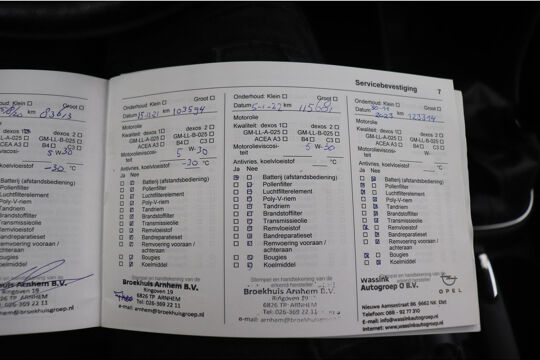 Servicebevestiging 7
oud: Klein ☐ Groot ☐
km 83613
dexos 1 dexos 2 ☐
GM-LL-A-025 ☐ GM-LL-B-025 ☐
ACEA A3 ☐ B4 ☐ C3 ☐
5 W-30
koelvloeistof -30 °C
(afstandsbediening)
Stempel en handtekening van de
Arnhem B.V.
Ringoven 19
6826 TP ARNHEM
Tel: 026-369 22 11
Onderhoud: Klein ☐ Groot ☐
Datum 15-11-21 km 103594
Motorolie
Kwaliteit: dexos 1 ☐ dexos 2 ☐
GM-LL-A-025 ☐ GM-LL-B-025 ☐
ACEA A3 ☐ B4 ☐ C3 ☐
Motorolieviscosi-
teit 5 W-30
Antivries, koelvloeistof -30 °C
Ja Nee
Batterij (afstandsbediening)
Pollenfilter
Luchtfilterelement
Poly-V-riem
Tandriem
Brandstoffilter
Transmissieolie
Remvloeistof
Bandreparatieset
Remvoering vooraan /
achteraan
Bougies
Koelmiddel
Stempel en handtekening van de
Broekhuis Arnhem B.V.
Ringoven 19
6826 TP ARNHEM
Tel: 026-369 22 11
e-mail: arnhem@broekhuisgroep.nl
Onderhoud: Klein ☐ Groot ☐
Datum 5-1-22 km 115681
Motorolie
Kwaliteit: dexos 1 ☐ dexos 2 ☐
GM-LL-A-025 ☐ GM-LL-B-025 ☐
ACEA A3 ☐ B4 ☐ C3 ☐
Motorolieviscosi-
teit 5 W-30
Antivries, koelvloeistof °C
Ja Nee
Batterij (afstandsbediening)
Pollenfilter
Luchtfilterelement
Poly-V-riem
Tandriem
Brandstoffilter
Transmissieolie
Remvloeistof
Bandreparatieset
Remvoering vooraan /
achteraan
Bougies
Koelmiddel
Stempel en handtekening van de
Broekhuis Arnhem B.V.
Ringoven 19
6826 TP ARNHEM
Tel: 026-369 22 11
Onderhoud: Klein ☐ Groot ☐
Datum 2023 km 123314
Motorolie
Kwaliteit: dexos 1 ☐ dexos 2 ☐
GM-LL-A-025 ☐ GM-LL-B-025 ☐
ACEA A3 ☐ B4 ☐ C3 ☐
Motorolieviscosi-
teit W-
Antivries, koelvloeistof °C
Ja Nee
Batterij (afstandsbediening)
Pollenfilter
Luchtfilterelement
Poly-V-riem
Tandriem
Brandstoffilter
Transmissieolie
Remvloeistof
Bandreparatieset
Remvoering vooraan /
achteraan
Bougies
Koelmiddel
Stempel en handtekening van de
Wassink
Autogroep O B.V. OPEL
Nieuwe Aamsestraat 86, 6662 NK Elst
Telefoon: 088 - 92 77 310
E-mail: info@wassinkautogroep.nl
Internet: www.wassinkautogroep.nl